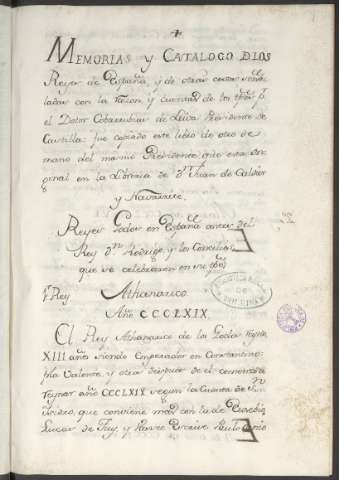 MEMORIAS y CATALOGO DLOS
Reyes de España, y de otras cosas seña
ladas con la Razon, y cuenta de los tpõs q̃
el Dotor Cobarrubias de Leiva Presidente de
Castilla: fue copiado este libro de otro de
mano del mismo Presidente que esta ori
ginal en la Libreria de Dn Juan de
y Navarrete.
Reyes Godos en España antes del
Rey Dn Rodrigo, y los Concilios
que se celebraron en su tpõ
1º Rey Athanarico
Año CCCLXIX.
El Rey Athanarico de los Godos Reyno
XIII años siendo Emperador en Constantino
pla Valente, y otros despues de el comenzo a
Reynar año CCCLXIX segun la Cuenta de Sn
Isidro, que conviene mas con la de Eusebio,
Lucas de Tuy, y Paulo